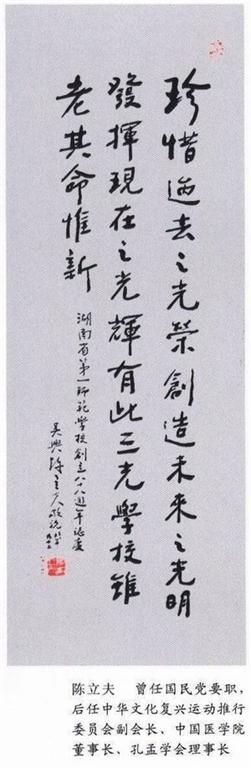 珍惜過去之光榮創造未來之光明
發揮現在之光輝有此三光學校雖
老其命惟新
湖南省第一師範學校創立八八週年誌慶
吳興陳立夫敬祝
陈立夫　曾任国民党要职，
后任中华文化复兴运动推行
委员会副会长、中国医学院
董事长、孔孟学会理事长